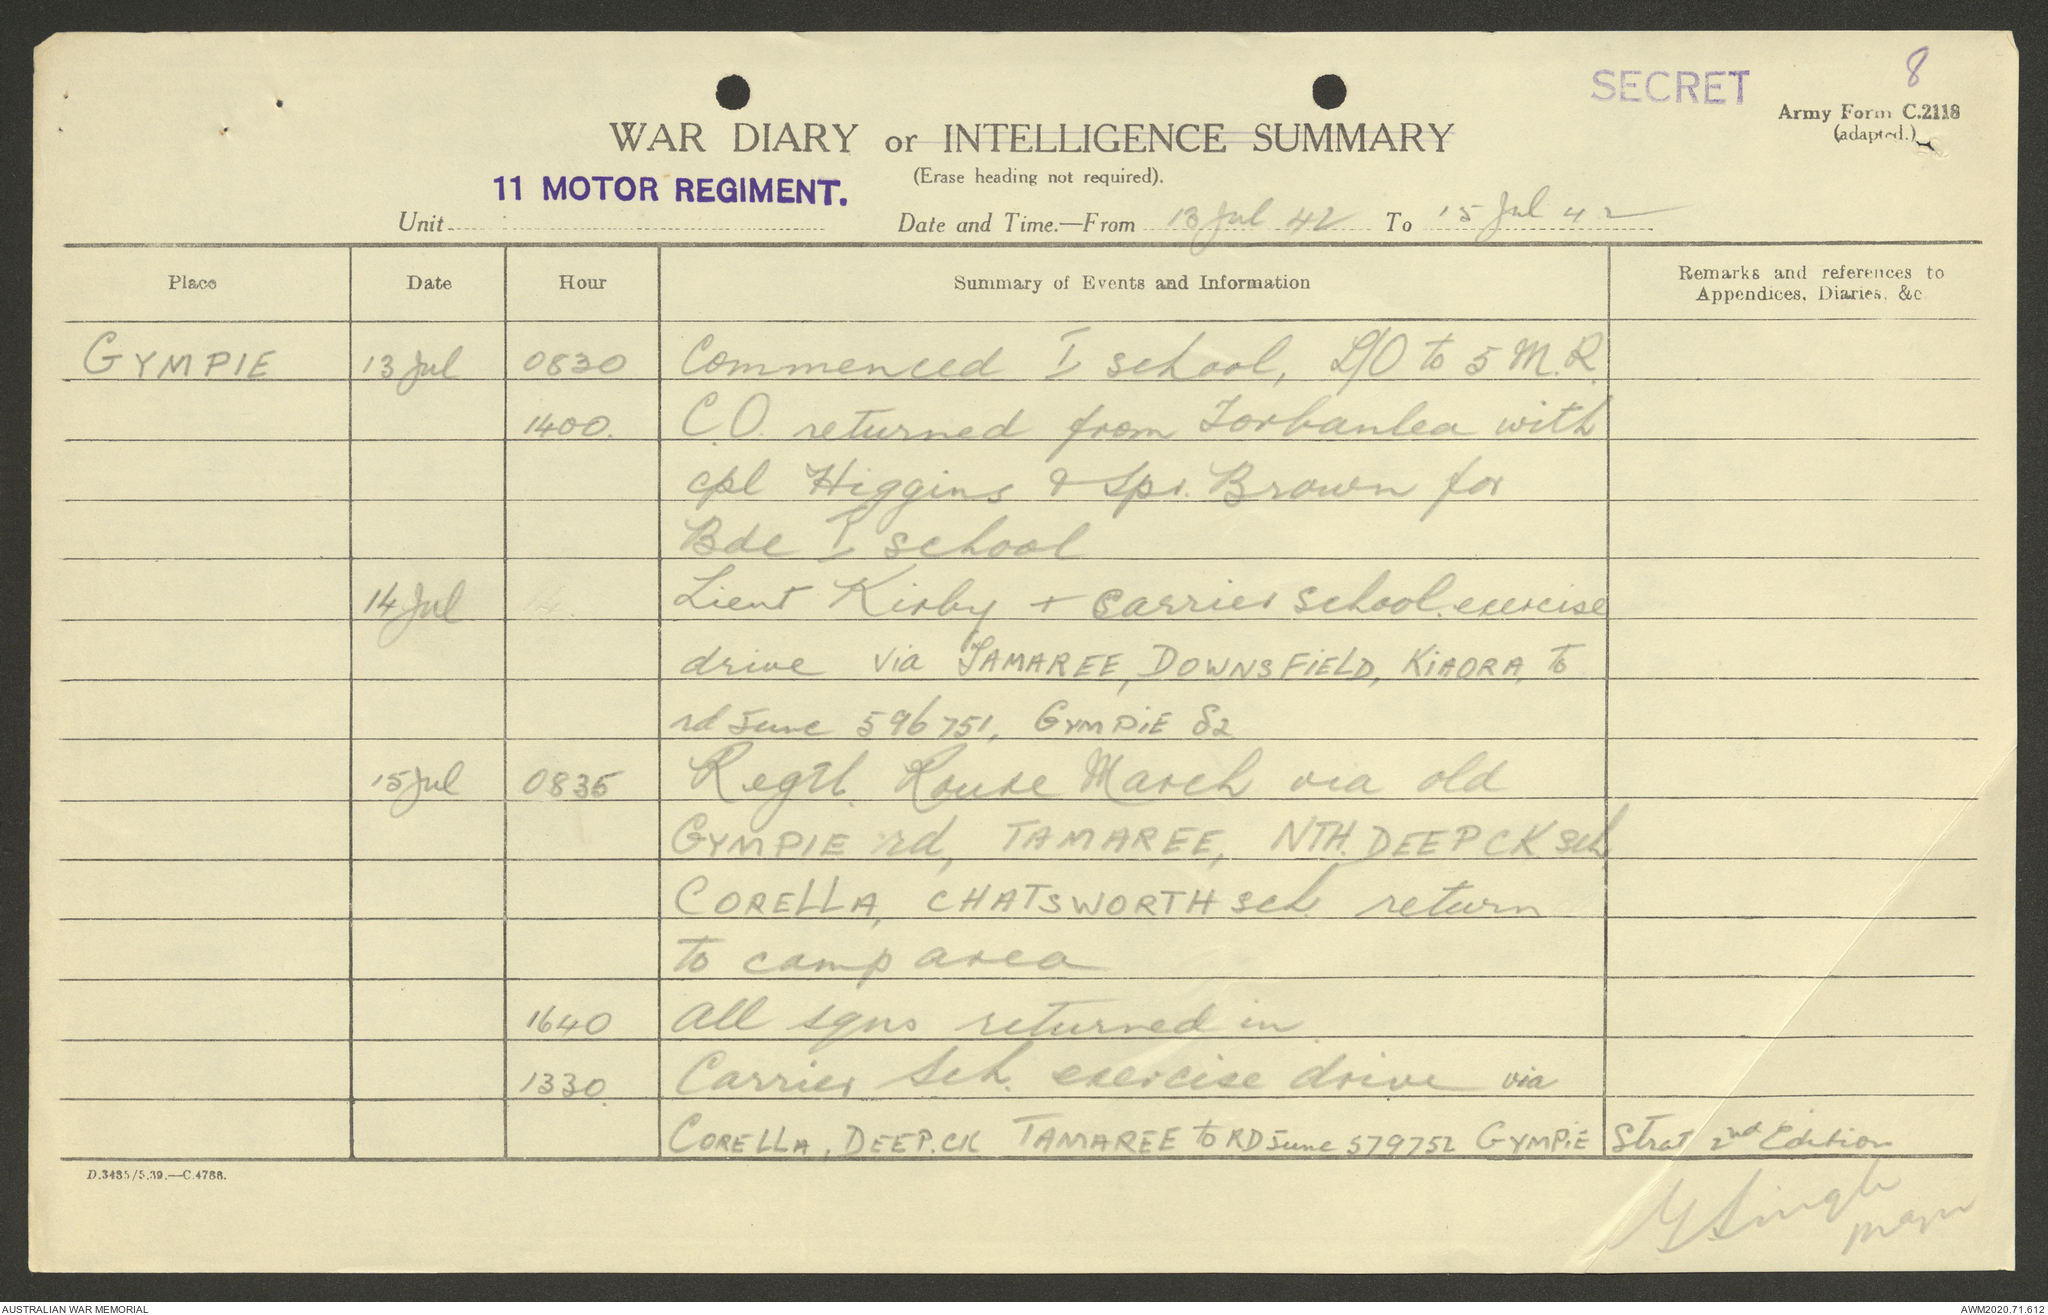 SECRET
8
Army Form C.2118
(adapted.)
WAR DIARY or INTELLIGENCE SUMMARY
(Erase heading not required).
11 MOTOR REGIMENT.
Unit
Date and Time.—From 13 Jul 42 To 15 Jul 42
Place Date Hour Summary of Events and Information Remarks and references to Appendices, Diaries, &c
GYMPIE 13 Jul 0830 Commenced I school, L/O to 5 M.R.
1400. C.O. returned from Torbanlea with
cpl Higgins & Spr. Brown for
Bde I school
14 Jul Lieut Kirby + carrier school. exercise
drive via TAMAREE, DOWNSFIELD, KIAORA, to
rd junc 596751, GYMPIE S2
15 Jul 0835 Regtl. Route March via old
GYMPIE rd, TAMAREE, NTH. DEEP CK sch
CORELLA, CHATSWORTH sch. return
to camp area
1640 All sqns returned in
1330. Carrier Sch. exercise drive via
CORELLA, DEEP.CK TAMAREE to RD junc 579752 GYMPIE Strat 2nd Edition
D.3485/5.39.—C.4788.
Singh
Major
AUSTRALIAN WAR MEMORIAL
AWM2020.71.612